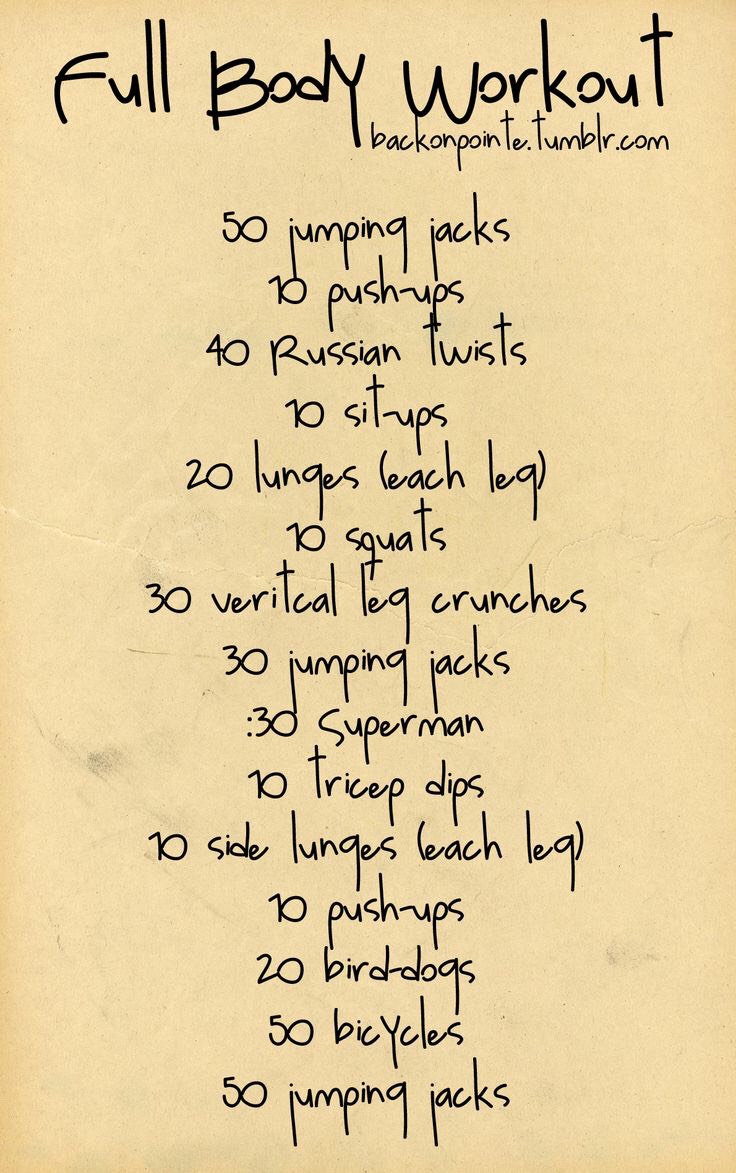 Full Body Workout
backonpointe.tumblr.com
50 jumping jacks
10 push-ups
40 Russian twists
10 sit-ups
20 lunges (each leg)
10 squats
30 veritcal leg crunches
30 jumping jacks
:30 Superman
10 tricep dips
10 side lunges (each leg)
10 push-ups
20 bird-dogs
50 bicycles
50 jumping jacks